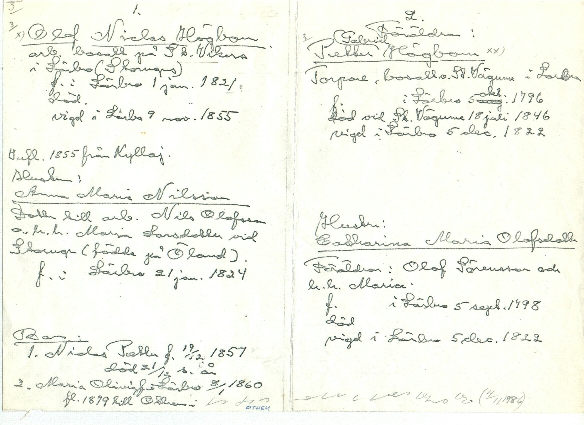 1.
x) Olof Niclas Högbom
arb. bosatt på St. Vikers
i Lärbro (Skomags)
f. i Lärbro 1 jan. 1821.
död.
vigd i Lärbro 9 nov. 1855
Infl. 1855 från Kyllaj.
Hustru:
Anna Maria Nilsson
Dotter till arb. Nils Olofsson
o. h. h. Maria Larsdotter vid
(födda på Öland).
f. i Lärbro 21 jan. 1824
Barn:
1. Niclas Petter f. 19/12 1857
död 21/12 s. år
2. Maria Olivia f. Lärbro 1860
fl. 1879 till
2.
Föräldrar:
Petter Högbom xx)
Torpare, bosatt o. St. Vägume i Lärbro
f. i Lärbro 5 okt. 1796
död vid St. Vägume 18 juli 1846
vigd i Lärbro 5 dec. 1822
Hustru:
Catharina Maria Olofsdotter
Föräldrar: Olof Sörensson och
h. h. Maria.
f. i Lärbro 5 sept. 1798
död
vigd i Lärbro 5 dec. 1822